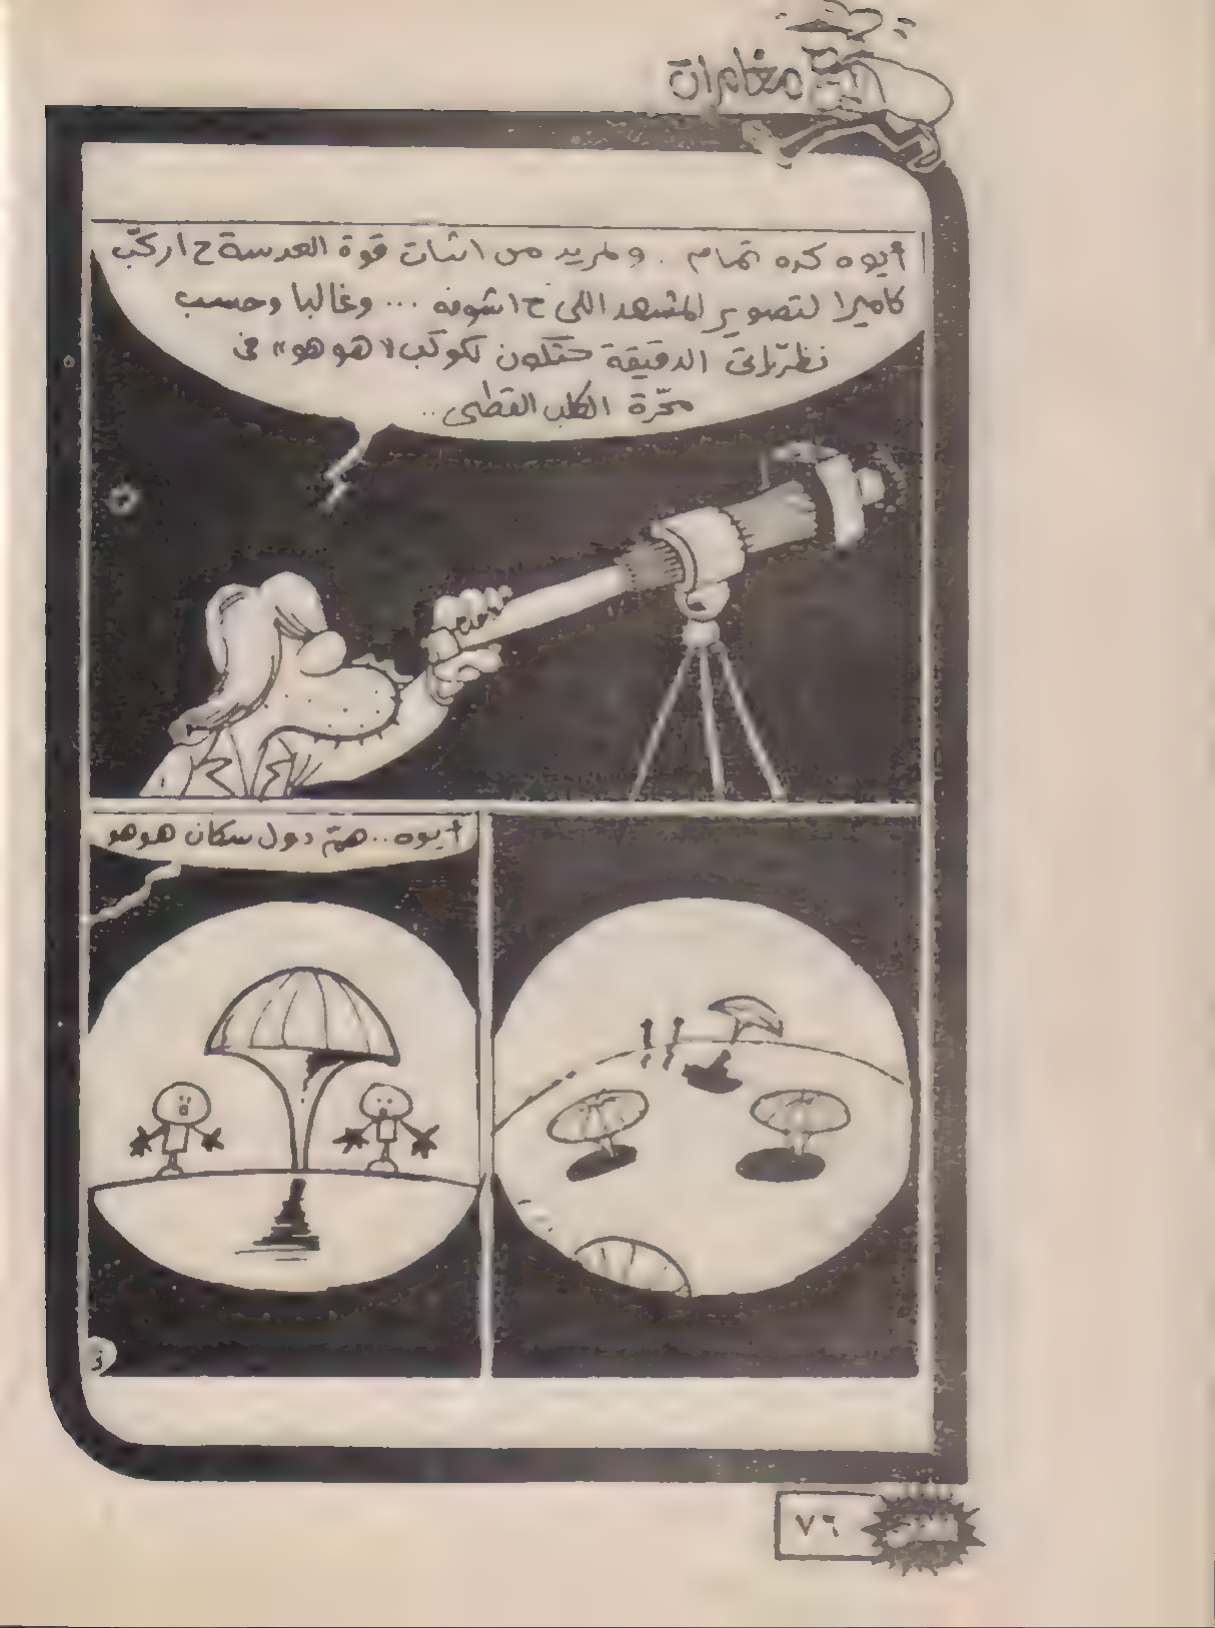 مغامرات
أيوه كده تمام .. ولمزيد من اثبات قوة العدسة ح اركّب
كاميرا لتصوير المشهد اللى ح اشوفه ... وغالبا وحسب
نظرياتى الدقيقة حتكون لكوكب «هوهو» فى
مجرّة الكلب القطبى ..
أيوه .. همّ دول سكان هوهو
٧٦